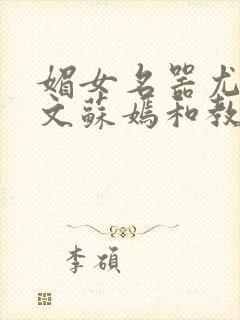 媚女名器尤
文蘇媽和教
李碩